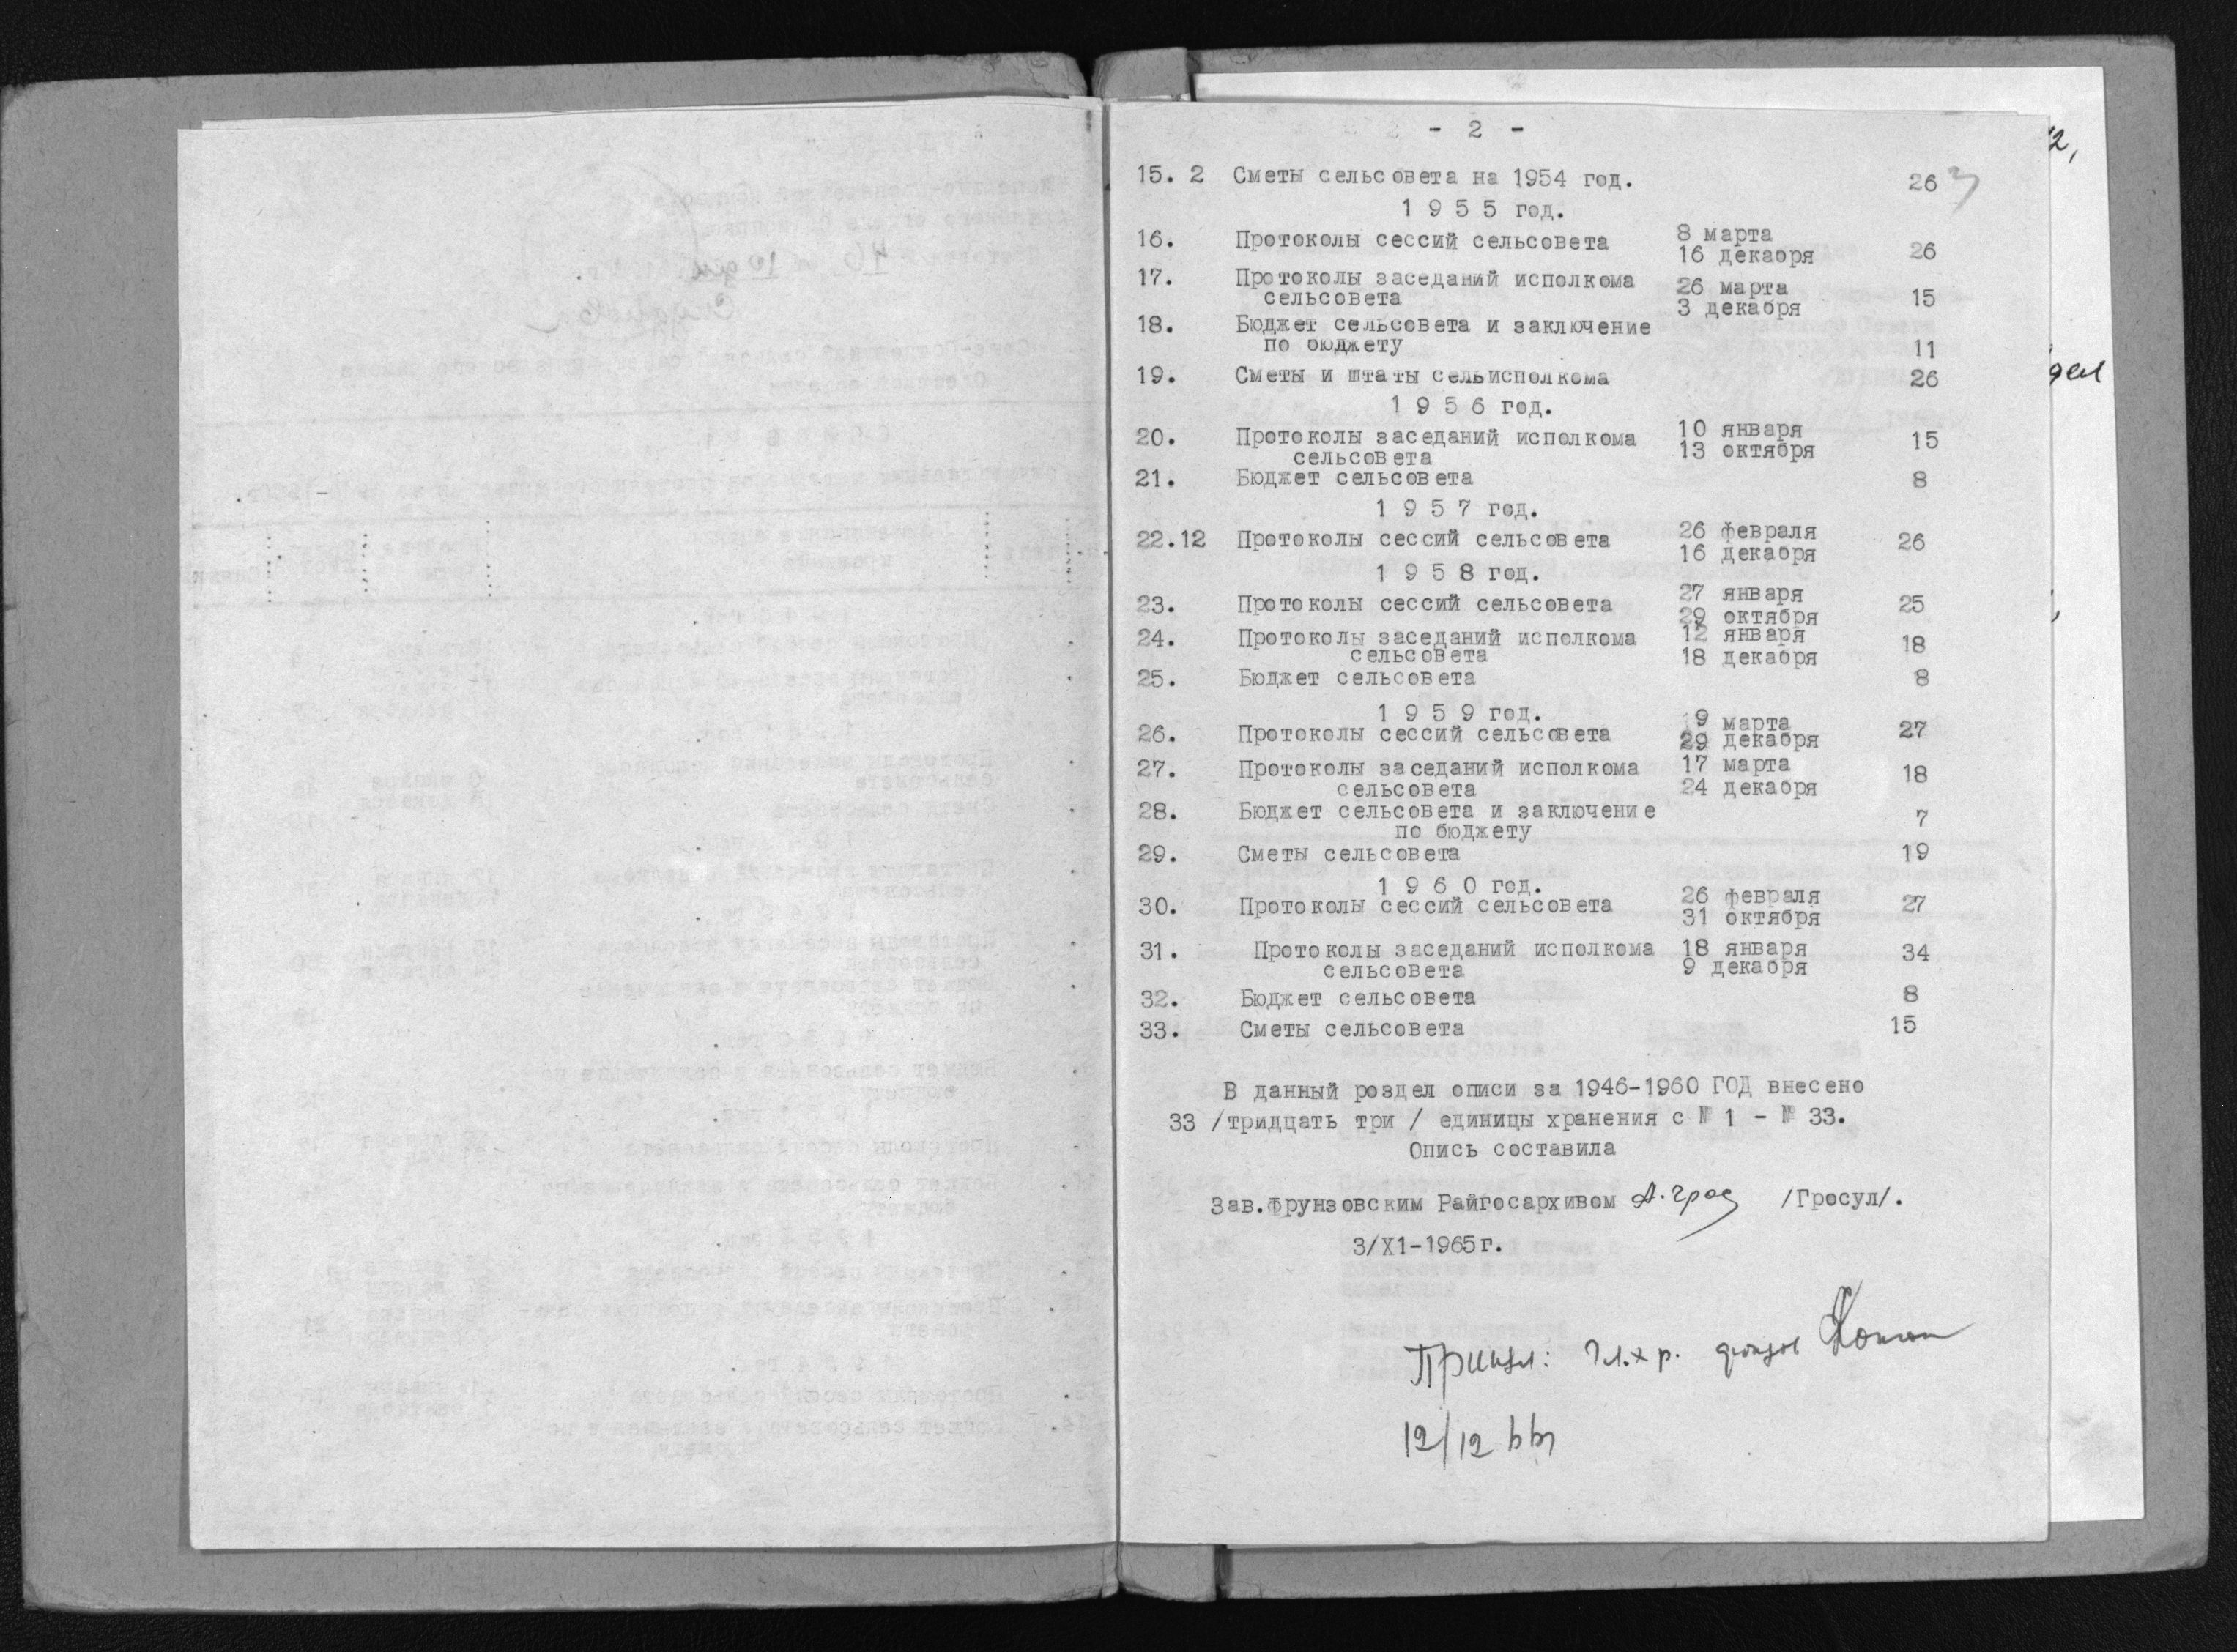 - 2 -
15. 2 Сметы сельсовета на 1954 год. 26 3
1 9 5 5 год.
16. Протоколы сессий сельсовета 8 марта
16 декабря 26
17. Протоколы заседаний исполкома 26 марта
сельсовета 3 декабря 15
18. Бюджет сельсовета и заключение
по бюджету 11
19. Сметы и штаты сельисполкома 26
1 9 5 6 год.
20. Протоколы заседаний исполкома 10 января 15
сельсовета 13 октября
21. Бюджет сельсовета 8
1 9 5 7 год.
22.12 Протоколы сессий сельсовета 26 февраля 26
16 декабря
1 9 5 8 год.
23. Протоколы сессий сельсовета 27 января 25
29 октября
24. Протоколы заседаний исполкома 12 января 18
сельсовета 18 декабря
25. Бюджет сельсовета 8
1 9 5 9 год.
26. Протоколы сессий сельсовета 9 марта 27
29 декабря
27. Протоколы заседаний исполкома 17 марта 18
сельсовета 24 декабря
28. Бюджет сельсовета и заключение 7
по бюджету
29. Сметы сельсовета 19
1 9 6 0 год.
30. Протоколы сессий сельсовета 26 февраля 27
31 октября
31. Протоколы заседаний исполкома 18 января 34
сельсовета 9 декабря
32. Бюджет сельсовета 8
33. Сметы сельсовета 15
В данный роздел описи за 1946-1960 ГОД внесено
33 /тридцать три / единицы хранения с № 1 - № 33.
Опись составила
Зав.фрунзовским Райгосархивом /Гросул/.
3/X1-1965г.
Принял: Гл.хр.
12/12 66г
12,
дел